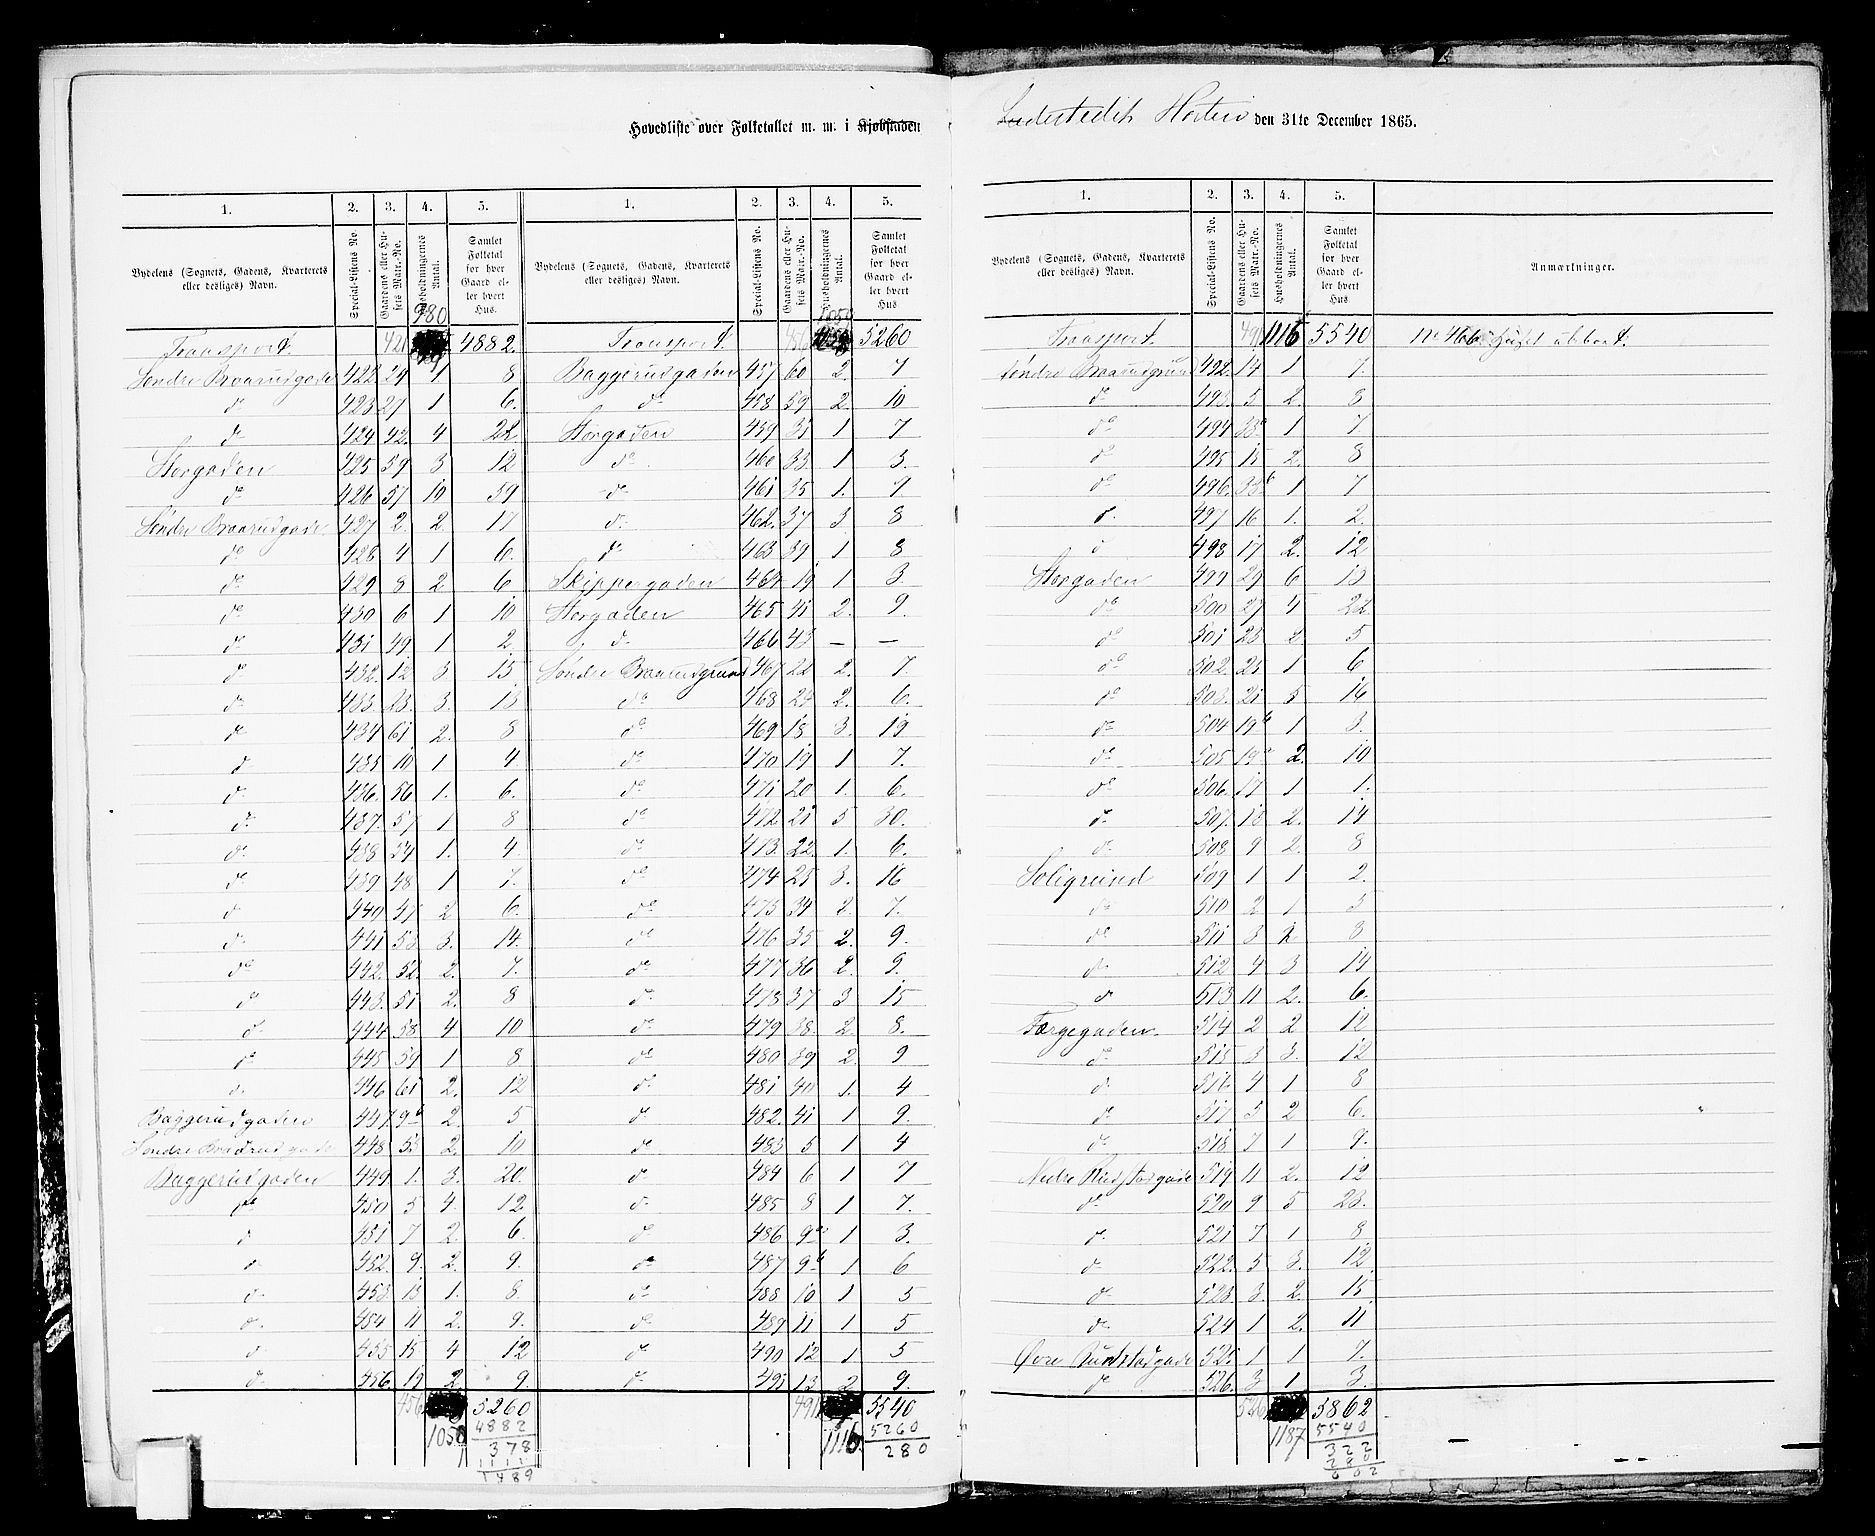 Hovedliste over Folketallet m. m. i Kjøbstaden Ladestedet Horten den 31te December 1865.
1. 2. 3. 4. 5. 1. 2. 3. 4. 5.
Bydelens (Sognets, Gadens, Kvarterets eller desliges) Navn. Special-Listens No. Gaardens eller Husets Matr.-No. Husholdningernes Antal. Samlet Folketal for hver Gaard eller hvert Hus. Bydelens (Sognets, Gadens, Kvarterets eller desliges) Navn. Special-Listens No. Gaardens eller Husets Matr.-No. Husholdningernes Antal. Samlet Folketal for hver Gaard eller hvert Hus
980 1050
Transport. 421 4882. Transport. 456 5260
Søndre Braarudgade 422 24 1 8 Baggerudgaden 457 60 2. 7
do 423 27 1 6. do 458 59 2. 10
do 424 42. 4 22 Storgaden 459 31 1 7
Storgaden 425 59 3 12 do 460 33 1 3.
do 426 57 10 39 do 461 35 1. 9.
Søndre Braarudgade 427 2. 2. 17 do 462. 37 3 8
do 428 4 1 6. do 463 39 1 8
do 429 8 2 6 Skippergaden 464 19 1 3
do 430 6 1 10 Storgaden 465 41 2. 9.
do 431 49 1 2 do 466 43 — —
do 432. 12 3 15 Søndre Braarudgrund 467 22 2. 7.
do 433. 23. 3. 13 do 468 24 2. 6.
do 434 61 2. 8 do 469 18 3. 19
do 435 10 1 4 do 470 19 1 7.
do 436. 56 1. 6. do 471 20 1. 6.
do 437. 57 1 8 do 472 21 5 30.
do 438 54 1. 4. do 473. 22. 1. 6.
do 439 48 1 7. do 474 25 3. 16
do 440 47 2 6. do 475 34 2. 7.
do 441 53 3. 14. do 476 35 2. 9.
do 442. 52. 2. 7. do 477 36 2. 9.
do 443. 51 2. 8 do 478 37 3 15
do 444 58 4 10 do 479 38. 2. 8.
do 445 59 1 8 do 480 39 2. 9
do 446 61 2. 12 do 481 40 1. 4
Baggerudgaden 447 9b 2. 5 do 482. 41 1 9.
Søndre Braarudgade 448 55 2. 10 do 483 5 1 4
Baggerudgaden 449 1. 3. 20. do 484 6 1 7
do 450 5 4. 12 do 485 8 1 7.
do 451 7 2. 6. do 486 9a 1 3.
do 452. 9. 2. 9. do 487 9b 1 6
do 453. 13 1. 8. do 488 10 1 5
do 454 11 2. 9. do 489 11 1 5
do 455 15 4 12 do 490 12 1 5
do 456. 19 2. 9. do 491 13 2 9.
456 5260 491 5540
1050 4882 1116. 5260
378 280
1111
1489
1. 2. 3. 4. 5.
Bydelens (Sognets, Gadens, Kvarterets eller desliges) Navn. Special-Listens No. Gaardens eller Husets Matr.-No. Husholdningernes Antal. Samlet Folketal for hver Gaard eller hvert Hus Anmærkninger.
Transport. 491 1116 5540 No 466 Huset afbrændt.
Søndre Braarudgrund 492. 14 1 7.
do 493. 5 2. 8
do 494 33a 1 7.
do 495 15 2. 8
do 496. 33b 1 7
do 497 16 1. 2.
do 498 17 2. 12
Storgaden 499 29 6 13
do 500 27 4 22.
do 501 23 2 5
do 502. 25 1 6
do 503. 21 5 16
do 504 19b 1 3.
do 505 19a 2. 10
do 506. 17 1 1.
do 507. 13 2. 14
do 508 9 2. 8
Soligrund 509 1 1 2.
do 510 2 1 5
do 511 3 2 8
do 512 4 3 14
do 513 11 2. 6.
Færgegaden 514 2 2 12
do 515 3 3. 12
do 516. 4 1 8
do 517 5 2 6.
do 518 7 1 9.
Nedre Rudstadgade 519 11 2. 12
do 520 9 5 23.
do 521 7 1 8
do 522. 5 3. 12
do 523 3. 2. 15
do 524 1 2. 11
Øvre Rudstadgade 525 1 1 7.
do 526. 3 1 3.
526 5862
1187 5540
322
280
602